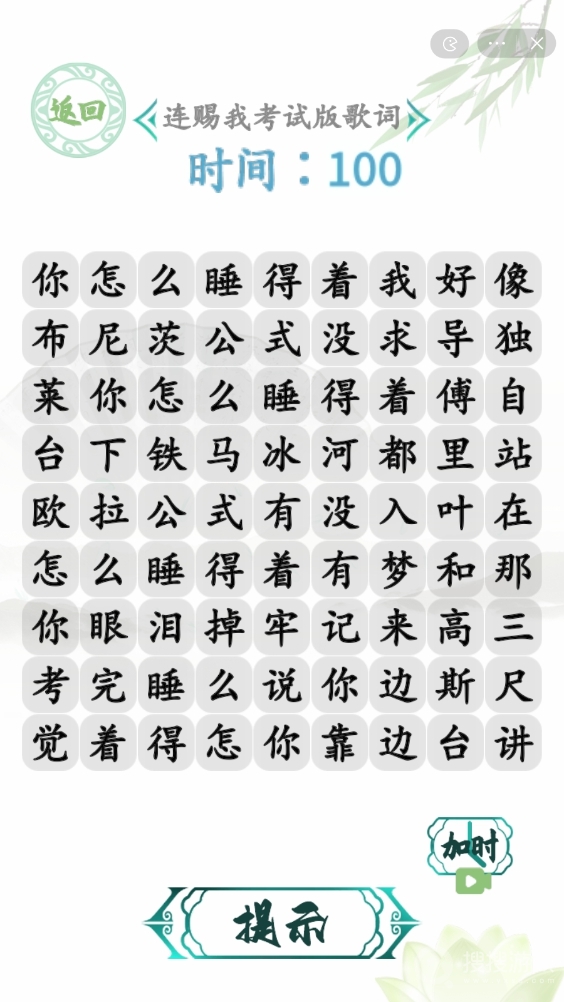 返回
连赐我考试版歌词
时间：100
你怎么睡得着我好像
布尼茨公式没求导独
莱你怎么睡得着傅自
台下铁马冰河都里站
欧拉公式有没入叶在
怎么睡得着有梦和那
你眼泪掉牢记来高三
考完睡么说你边斯尺
觉着得怎你靠边台讲
加时
提示